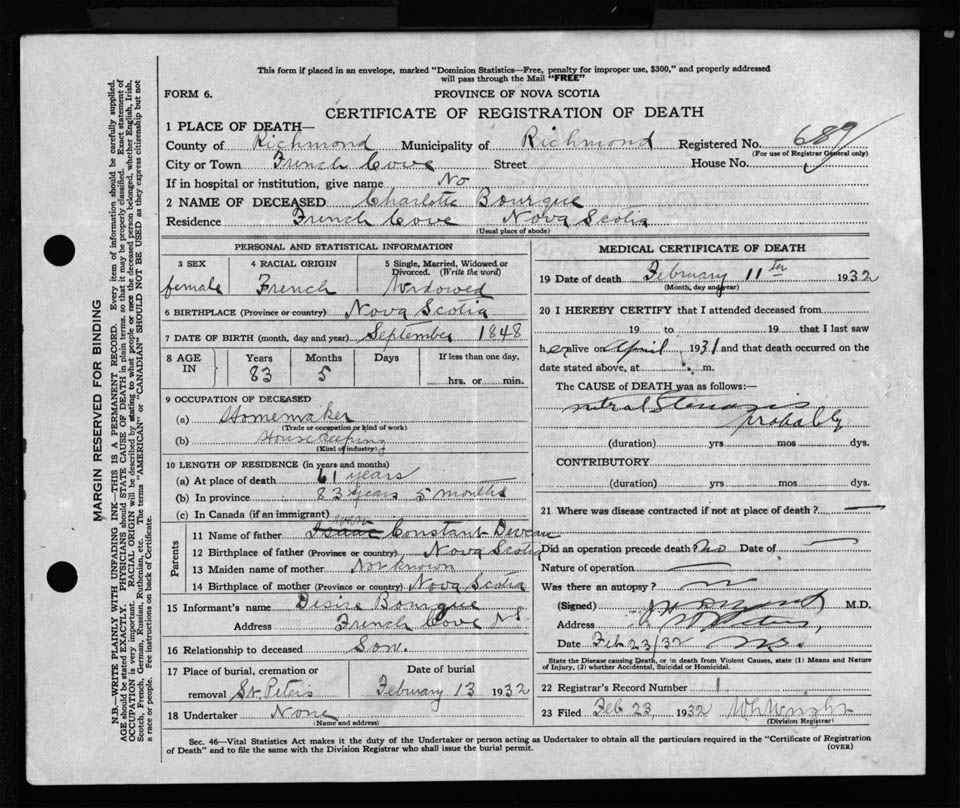 This form if placed in an envelope, marked "Dominion Statistics—Free, penalty for improper use, $300," and properly addressed
will pass through the Mail "FREE"
FORM 6. PROVINCE OF NOVA SCOTIA
CERTIFICATE OF REGISTRATION OF DEATH
1 PLACE OF DEATH—
County of Richmond Municipality of Richmond Registered No. 689
(For use of Registrar General only)
City or Town French Cove Street House No.
If in hospital or institution, give name No
2 NAME OF DECEASED Charlotte Bourque
Residence French Cove Nova Scotia
(Usual place of abode)
PERSONAL AND STATISTICAL INFORMATION
3 SEX 4 RACIAL ORIGIN 5 Single, Married, Widowed or Divorced. (Write the word)
female French Widowed
6 BIRTHPLACE (Province or country) Nova Scotia
7 DATE OF BIRTH (month, day and year) September 1848
8 AGE IN Years Months Days If less than one day,
83 5 hrs. or min.
9 OCCUPATION OF DECEASED
(a) Homemaker
(Trade or occupation or kind of work)
(b) House keeping
(Kind of industry)
10 LENGTH OF RESIDENCE (in years and months)
(a) At place of death 61 years
(b) In province 83 years 5 months
(c) In Canada (if an immigrant)
Parents
11 Name of father Isaac Constant Deveau
12 Birthplace of father (Province or country) Nova Scotia
13 Maiden name of mother Not known
14 Birthplace of mother (Province or country) Nova Scotia
15 Informant's name Desire Bourque
Address French Cove N S.
16 Relationship to deceased Son.
17 Place of burial, cremation or Date of burial
removal St. Peters February 13 1932
18 Undertaker None
(Name and address)
MEDICAL CERTIFICATE OF DEATH
19 Date of death February 11th 1932
(Month, day and year)
20 I HEREBY CERTIFY that I attended deceased from
19 to 19 that I last saw
her alive on April 1931 and that death occurred on the
date stated above, at m.
The CAUSE of DEATH was as follows:—
mitral Stenosis
probably
(duration) yrs mos dys.
CONTRIBUTORY
(duration) yrs. mos. dys.
21 Where was disease contracted if not at place of death?
Did an operation precede death? No Date of
Nature of operation
Was there an autopsy?
(Signed) M.D.
Address
Date Feb 23/32 N.S.
State the Disease causing Death, or in death from Violent Causes, state (1) Means and Nature
of Injury, (2) whether Accidental, Suicidal or Homicidal.
22 Registrar's Record Number 1
23 Filed Feb 23 1932 W h Wright
(Division Registrar)
Sec. 46—Vital Statistics Act makes it the duty of the Undertaker or person acting as Undertaker to obtain all the particulars required in the "Certificate of Registration
of Death" and to file the same with the Division Registrar who shall issue the burial permit. (OVER)
MARGIN RESERVED FOR BINDING
N.B.—WRITE PLAINLY WITH UNFADING INK—THIS IS A PERMANENT RECORD. Every item of information should be carefully supplied.
AGE should be stated EXACTLY. PHYSICIANS should STATE CAUSE OF DEATH in plain terms, so that it may be properly classified. Exact statement of
OCCUPATION is very important. RACIAL ORIGIN will be described by stating to what people or race the deceased person belonged, whether English, Irish,
Scotch, French, German, Russian, Ruthenian, etc. The terms "AMERICAN" or "CANADIAN" SHOULD NOT BE USED as they express citizenship but not
a race or people. Fee instructions on back of Certificate.